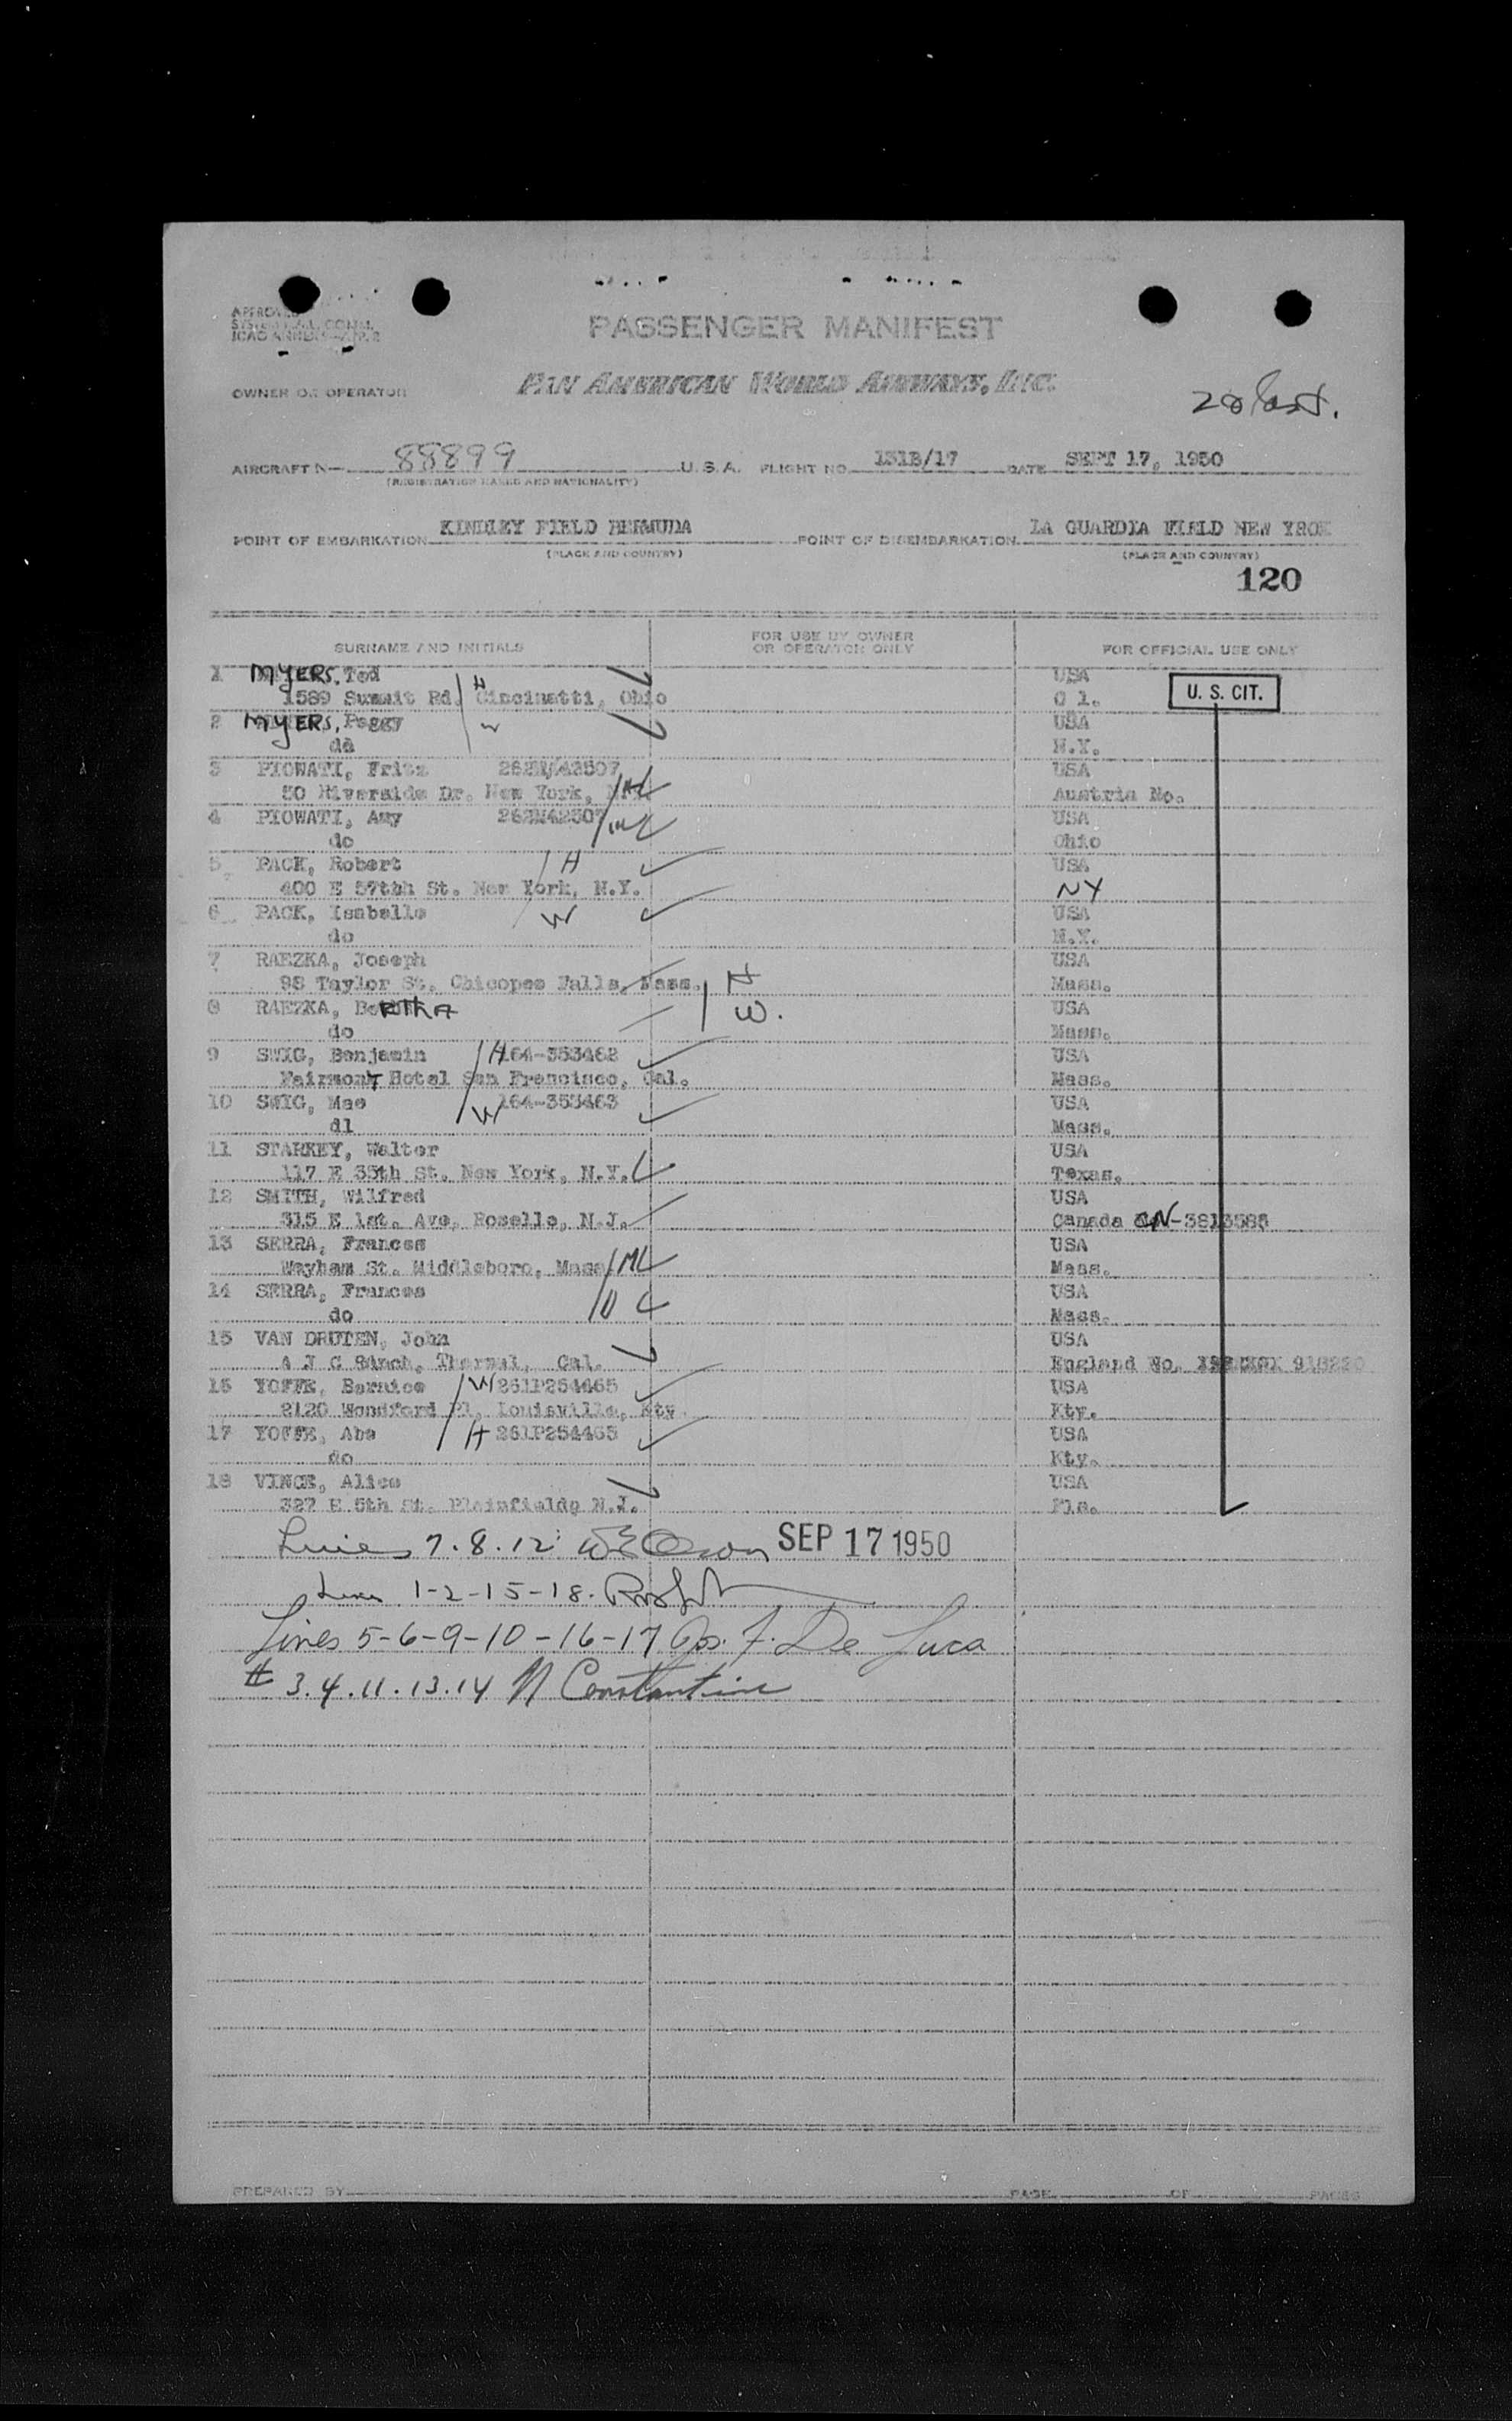 APPROVED
ICAO ANNEX
PASSENGER MANIFEST
OWNER OR OPERATOR PAN AMERICAN WORLD AIRWAYS, INC.
AIRCRAFT N— 88899 U. S. A. FLIGHT NO. 131B/17 DATE SEPT 17, 1950
(REGISTRATION MARKS AND NATIONALITY)
POINT OF EMBARKATION KINDLEY FIELD BERMUDA POINT OF DISEMBARKATION LA GUARDIA FIELD NEW YROK
(PLACE AND COUNTRY) (PLACE AND COUNTRY)
120
SURNAME AND INITIALS FOR USE BY OWNER OR OPERATOR ONLY FOR OFFICIAL USE ONLY
1 MYERS, Ted USA
1589 Summit Rd. H Cincinatti, Ohio O l. U. S. CIT.
2 MYERS, Peggy W USA
do N.Y.
3 PIOWATI, Fritz USA
50 Riverside Dr. New York, Austria No.
4 PIOWATI, Amy 262N42507 USA
do Ohio
5 PACK, Robert H USA
400 E 57tth St. New York, N.Y. NY
6 PACK, Isabelle W USA
do N.Y.
7 RAEZKA, Joseph USA
98 Taylor St. Chicopee Falls, Mass. H Mass.
8 RAEZKA, BERTHA W. USA
do Mass.
9 SWIG, Benjamin H 164-353462 USA
Fairmont Hotel San Francisco, Cal. Mass.
10 SWIG, Mae W 164-353463 USA
dl Mass.
11 STARKEY, Walter USA
117 E 35th St. New York, N.Y. Texas.
12 SMITH, Wilfred USA
315 E 1st. Ave, Roselle, N.J. Canada CN-3813585
13 SERRA, Frances USA
Wayham St. Middleboro, Mass Mass.
14 SERRA, Frances USA
do Mass.
15 VAN DRUTEN, John USA
A J C Ranch, Thermal, Cal. England No.
16 YOFFE, Bernice W 261P254465 USA
2120 Woodford Pl, Louisville, Kty. Kty.
17 YOFFE, Abe H 261P254465 USA
do Kty.
18 VINCE, Alice USA
327 E 5th St. Plainfieldy N.J. Fla.
Lines 7.8.12 SEP 17 1950
Lines 1-2-15-18.
Lines 5-6-9-10-16-17 Jos. F. De Luca
# 3.4.11.13.14 N Constantine
PREPARED BY PAGE OF PAGES